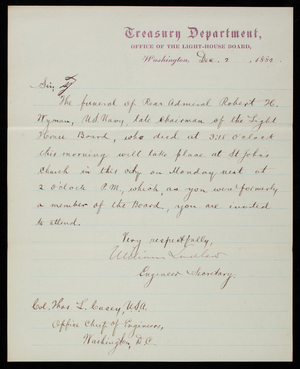 Treasury Department,
OFFICE OF THE LIGHT-HOUSE BOARD,
Washington, Dec. 2, 1882.
Sir,
The funeral of Rear Admiral Robert H.
Wyman, U.S. Navy, late Chairman of the Light
House Board, who died at 3:15 O'clock
this morning will take place at St John's
Church in this city on Monday next at
2 o'clock P.M., which, as you were formerly
a member of the Board, you are invited
to attend.
Very respectfully,
William Ludlow
Engineer Secretary.
Col. Thos. L. Casey, U.S.A.
Office Chief of Engineers,
Washington, D.C.